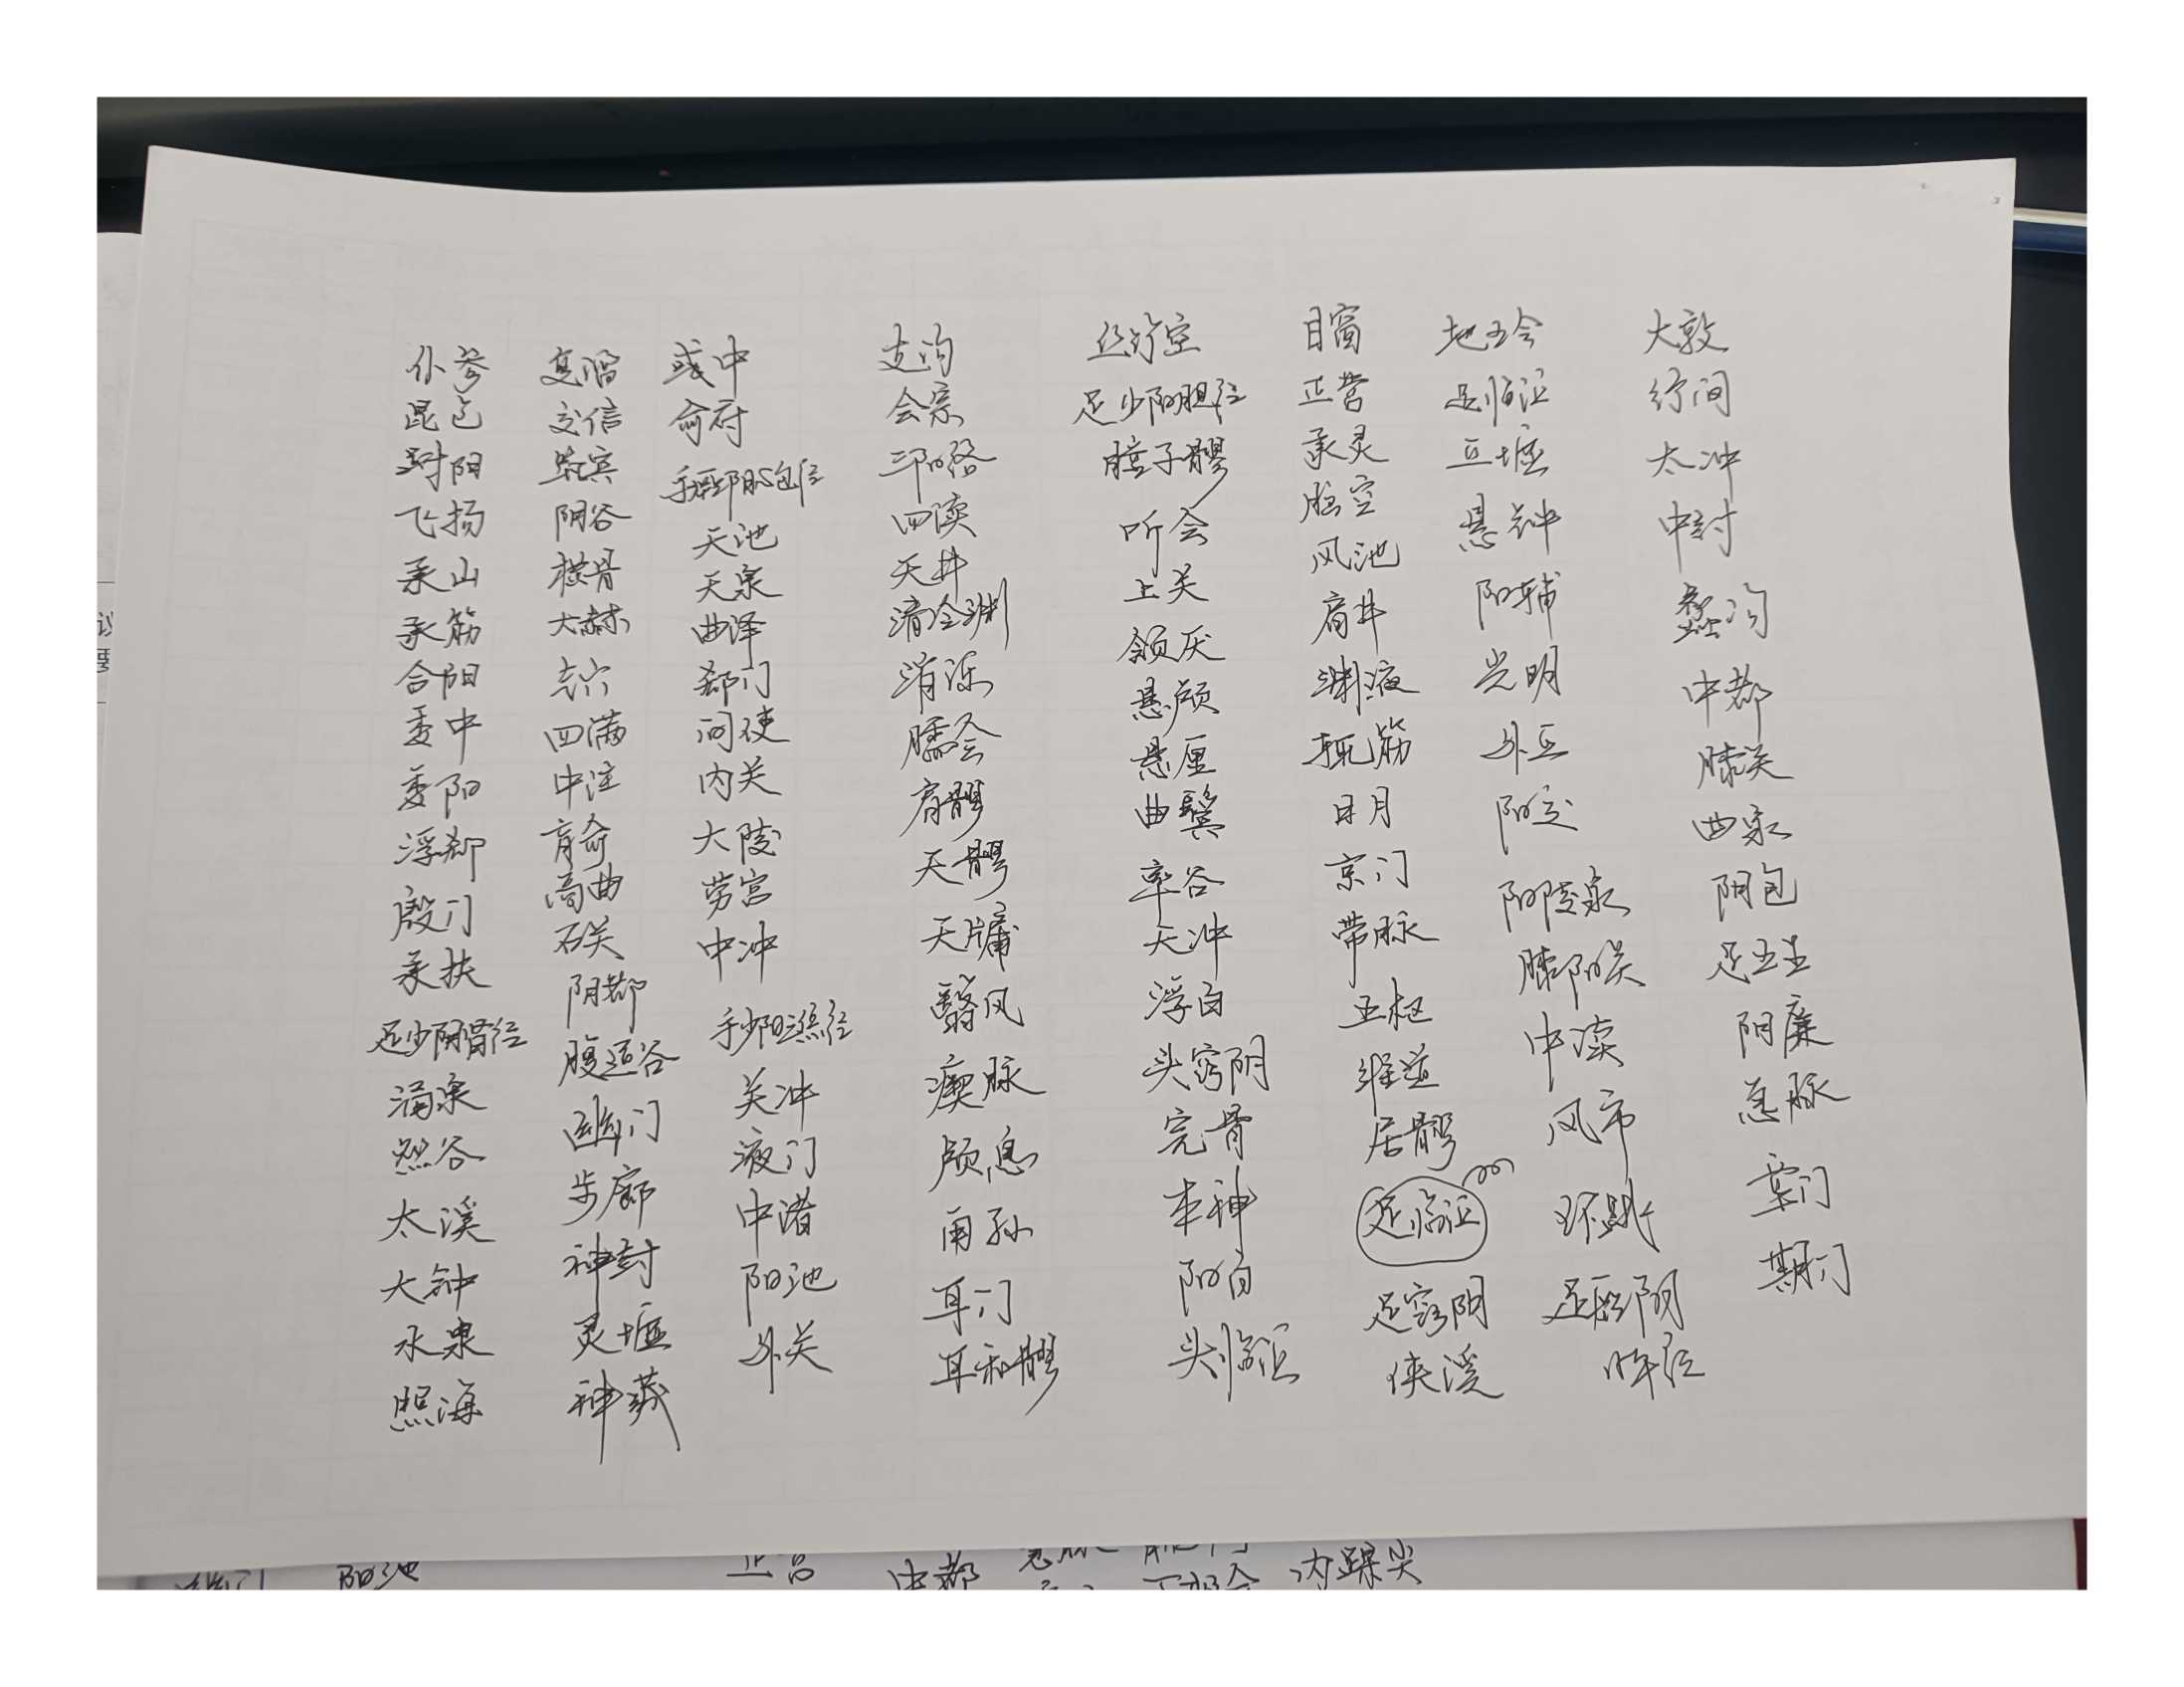 仆参
昆仑
跗阳
飞扬
承山
承筋
合阳
委中
委阳
浮郄
殷门
承扶
足少阴肾经
涌泉
然谷
太溪
大钟
水泉
照海
复溜
交信
筑宾
阴谷
横骨
大赫
气穴
四满
中注
肓俞
商曲
石关
阴都
腹通谷
幽门
步廊
神封
灵墟
神藏
彧中
俞府
手厥阴心包经
天池
天泉
曲泽
郄门
间使
内关
大陵
劳宫
中冲
手少阳三焦经
关冲
液门
中渚
阳池
外关
支沟
会宗
三阳络
四渎
天井
清冷渊
消泺
臑会
肩髎
天髎
天牖
翳风
瘈脉
颅息
角孙
耳门
耳和髎
丝竹空
足少阳胆经
瞳子髎
听会
上关
颔厌
悬颅
悬厘
曲鬓
率谷
天冲
浮白
头窍阴
完骨
本神
阳白
头临泣
目窗
正营
承灵
脑空
风池
肩井
渊液
辄筋
日月
京门
带脉
五枢
维道
居髎
足临泣
足窍阴
侠溪
地五会
足临泣
丘墟
悬钟
阳辅
光明
外丘
阳交
阳陵泉
膝阳关
中渎
风市
环跳
足厥阴
肝经
大敦
行间
太冲
中封
蠡沟
中都
膝关
曲泉
阴包
足五里
阴廉
急脉
章门
期门
阳池
正营
中都
内踝尖